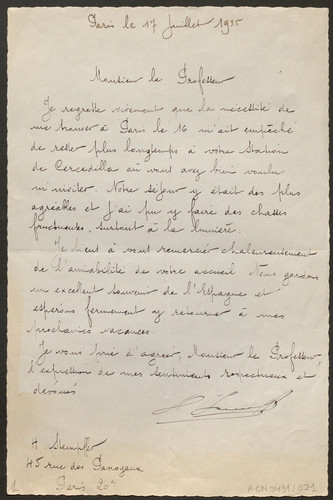 Paris le 17 Juillet 1935
Monsieur le Professeur
Je regrette vivement que la nécéssité de
me trouver à Paris le 16 m'ait empêché
de rester plus longtemps à votre Station
de Cercedilla où vous avez bien voulu
m'inviter. Notre séjour y était des plus
agréables et j'ai pu y faire des chasses
fructueuses, surtout à la lumière.
Je tient à vous remercier chaleureusement
de l'amiabilité de votre accueil. Nous gardons
un excellent souvenir de l'Espagne et
espérons fermement y retourner à mes
prochaines vacances.
Je vous prie d'agréer, Monsieur le Professeur,
l'expression de mes sentiments respectueux et
dévoués
H Stempffer
45 rue des Panoyaux
Paris 20e
1
ACN0431/021